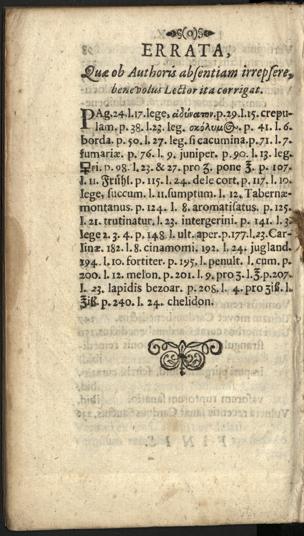 ERRATA,
Quæ ob Authoris absentiam irrepsere,
benevolus Lector ita corrigat.
PAg.24.l.17.lege, ἀδύνατον.p.29.l.15.crepu-
lam. p. 38. l.23. leg. σκόλυμος. p. 41. l. 6.
borda. p. 50. l. 27. leg. si cacumina.p.71. l.7.
fumariæ. p. 76. l. 9. juniper. p. 90. l. 13. leg.
♀ri. p. 98. l. 23. & 27. pro ℥. pone ʒ. p. 107.
l. 11. Frühl. p. 115. l. 24. dele cort. p. 117. l. 10.
lege, succum. l. 11. sumptum. l. 12. Tabernæ
montanus. p. 124. l. 8. aromatisatus. p. 125.
l. 21. trutinatur, l. 23. intergerini. p. 141. l. 3.
lege 2. 3. 4. p. 148. l. ult. aper. p.177.l.23.Car-
linæ. 182. l. 8. cinamomi. 192. l. 24. jugland.
194. l. 10. fortiter. p. 195. l. penult. l. cum. p.
200. l. 12. melon. p. 201. l. 9. pro ʒ. l. ℥. p.207.
l. 23. lapidis bezoar. p. 208. l. 4. pro ʒiß. l.
℥iß. p. 240. l. 24. chelidon.